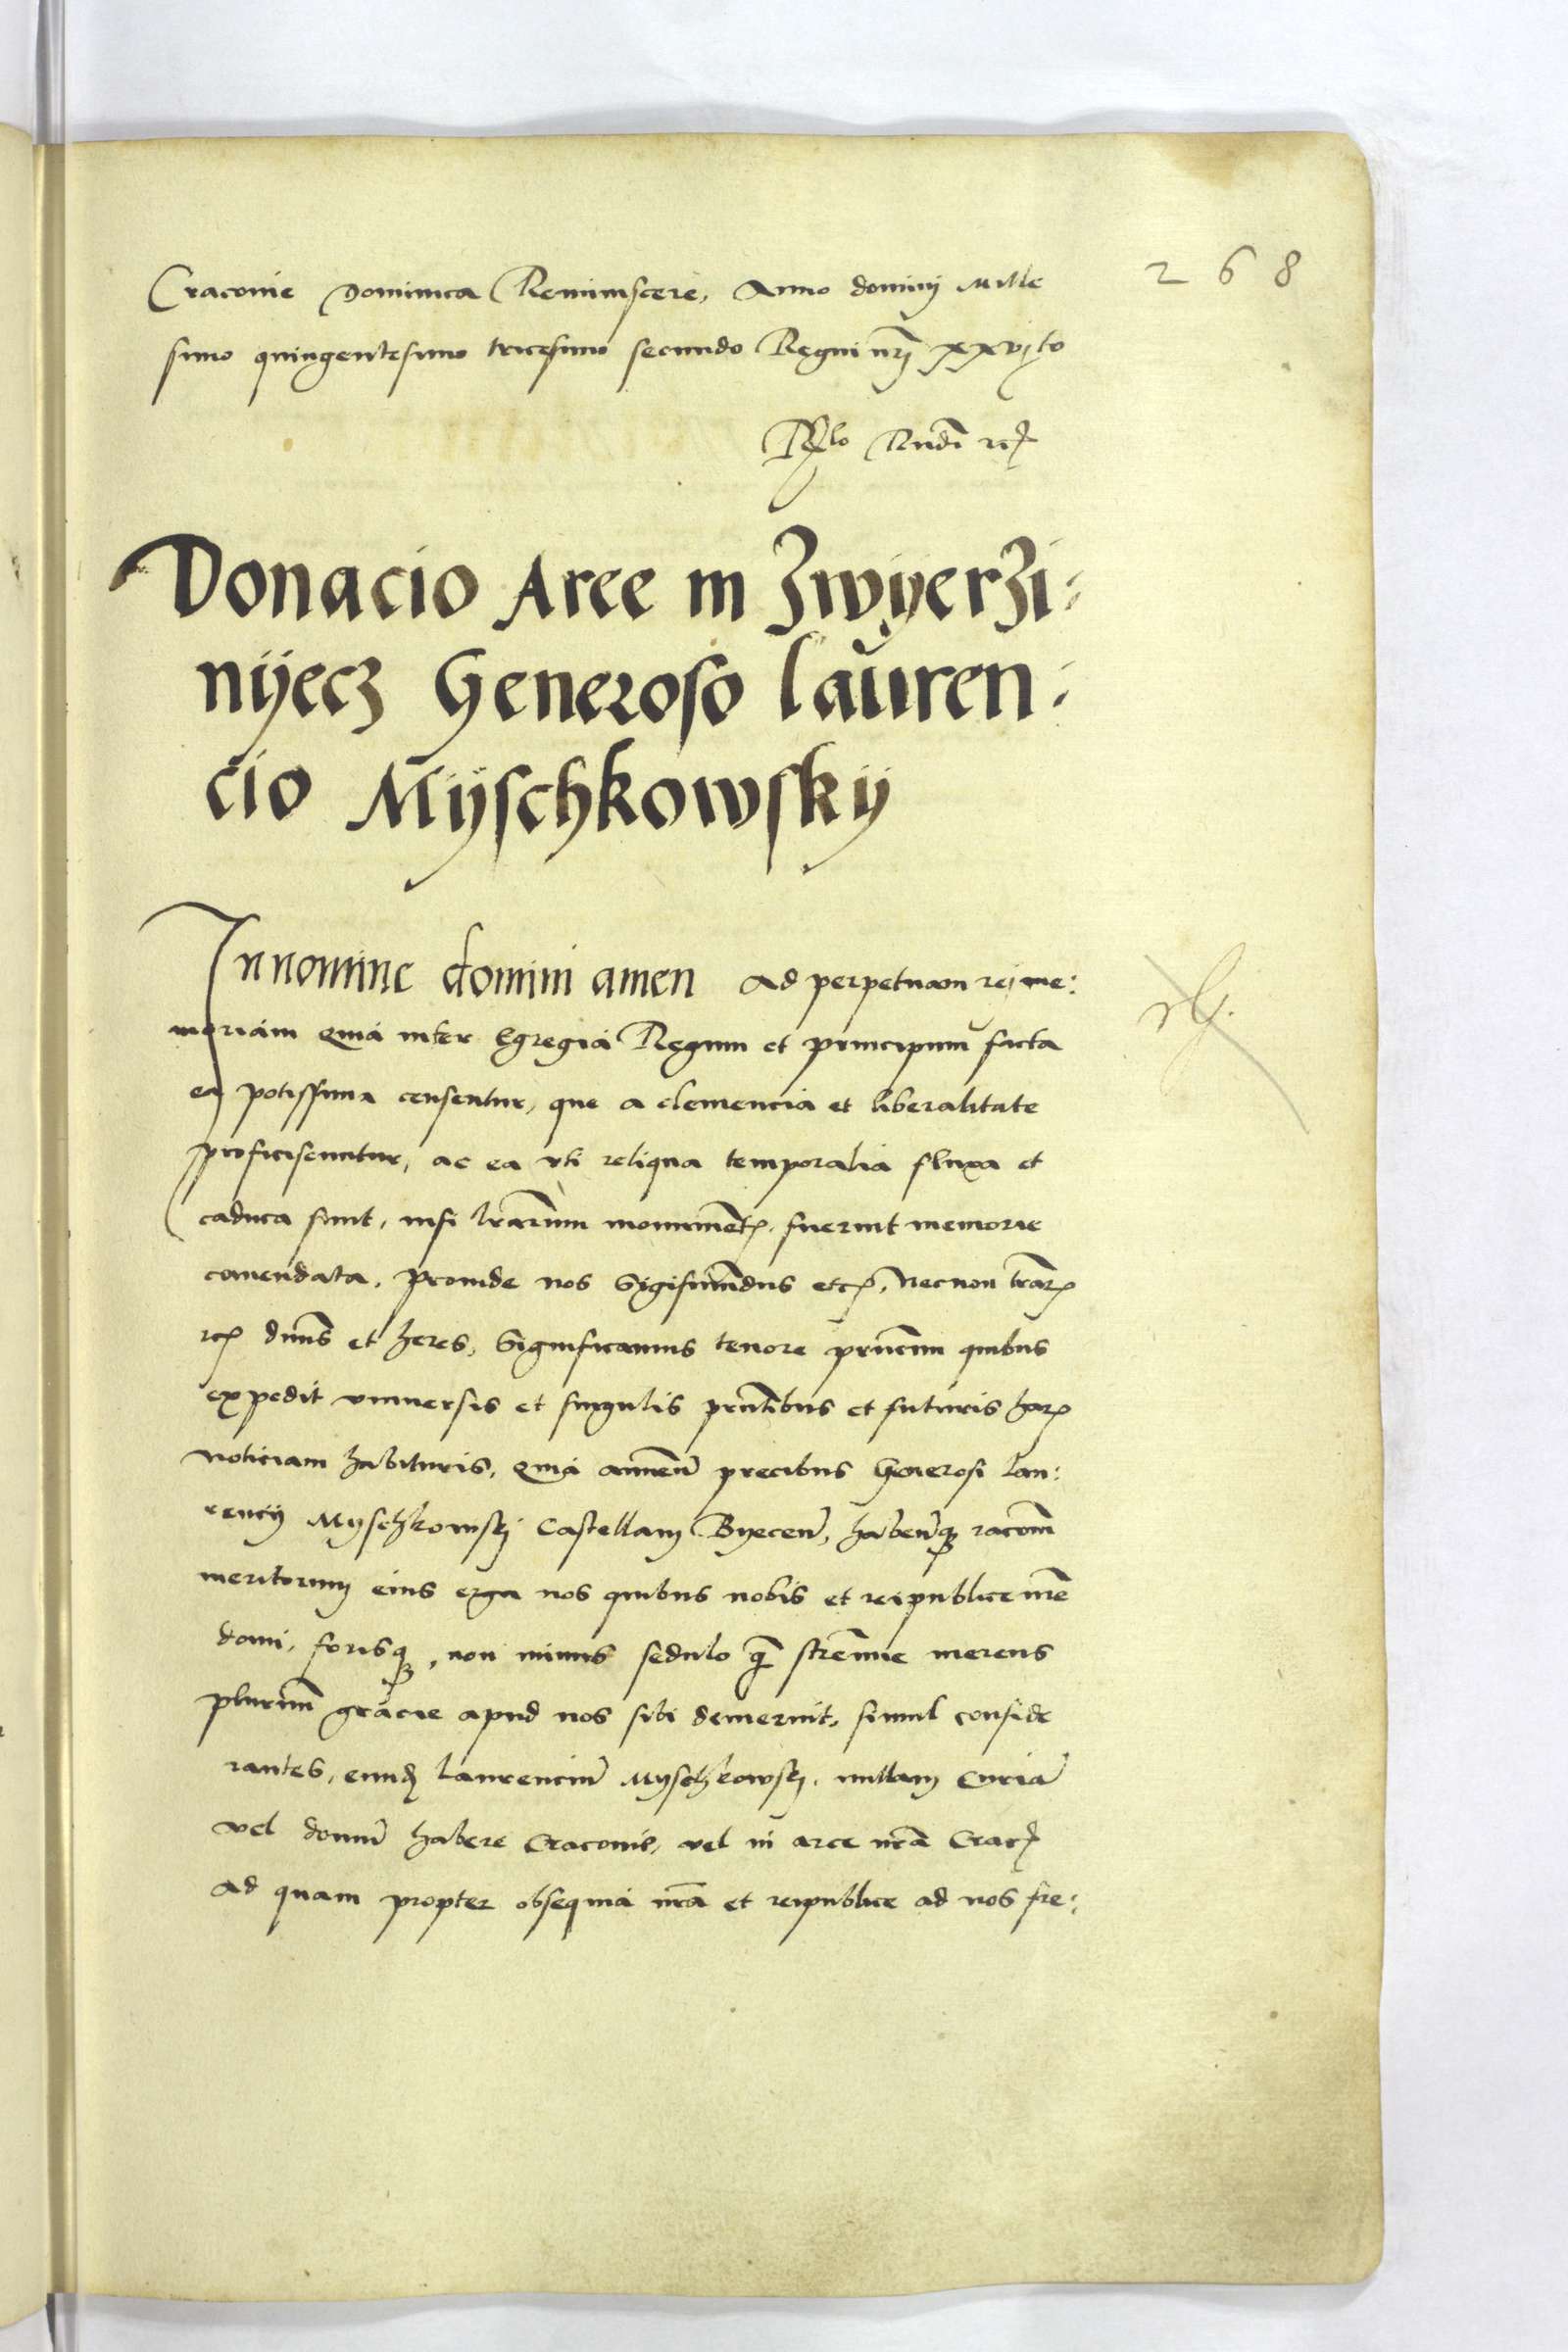 268
Cracovie Dominica Reminiscere, Anno domini Mille
simo quingentesimo tricesimo secundo Regni nrj xxvjto
Donacio Aree in Zwyerzi:
nyecz Generoso Lauren:
cio Myschkowsky
In nomine domini amen Ad perpetuam rei me:
moriam Quia inter Egregia Regum et principum facta
ea potissima censentur, que a clemencia et liberalitate
proficiscuntur, ac ea vti reliqua temporalia fluxa et
caduca sunt, nisi lrarum monument. fuerint memorie
comendata. Proinde nos Sigismundus etc. Necnon trar.
rc. dnus et heres, Significamus tenore prncium quibus
expedit vniuersis et singulis prntibus et futuris har.
noticiam habituris, Quia annuen precibus Generosi Lau:
rencij Myschkowskj Castellanj Byecen, habenque racom
meritorum eius erga nos quibus nobis et reipublice nre
domi, forisque, non minus sedulo q̃ strennue merens
plurimu gracie apud nos sibi demeruit, simul conside
rantes, eund Laurenciu Myschkowskj, nullam Curia
vel domu habere Cracovie, vel in arce nra Crac.
ad quam propter obsequia nra et reipublice ad nos fre: